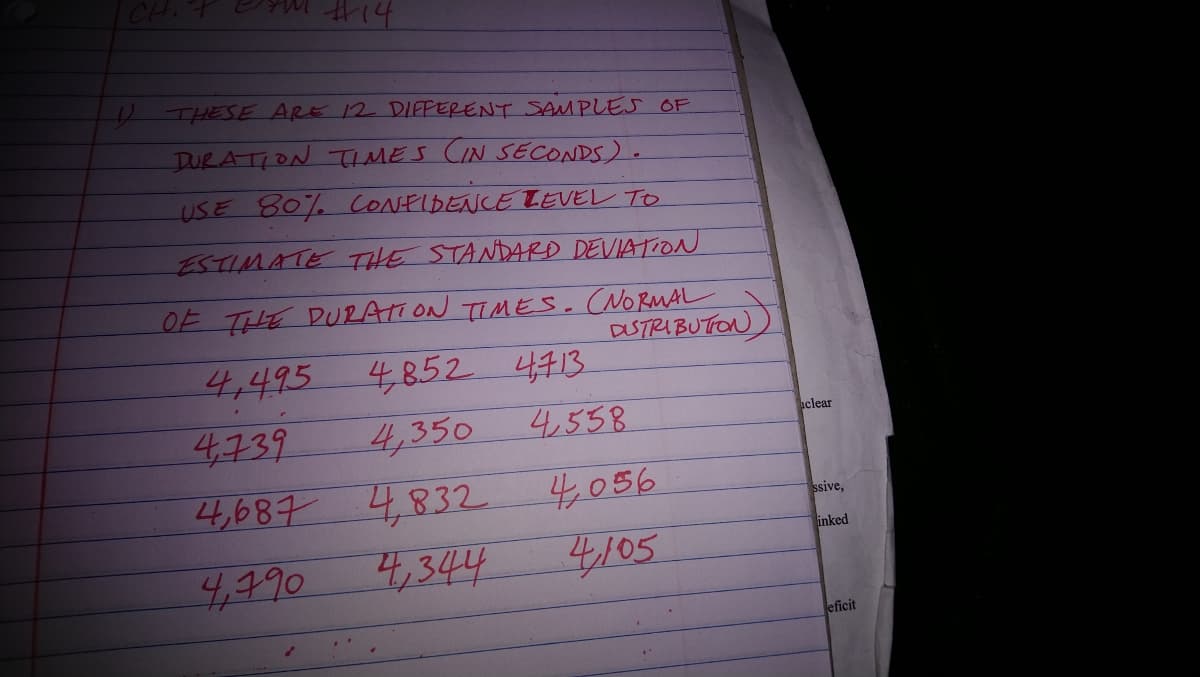 CH. 7 EXAM #14
1) THESE ARE 12 DIFFERENT SAMPLES OF
DURATION TIMES (IN SECONDS).
USE 80% CONFIDENCE LEVEL TO
ESTIMATE THE STANDARD DEVIATION
OF THE DURATION TIMES. (NORMAL
DISTRIBUTION)
4,495 4,852 4,713
4,739 4,350 4,558
4,687 4,832 4,056
4,790 4,344 4,105
nclear
ssive,
inked
eficit